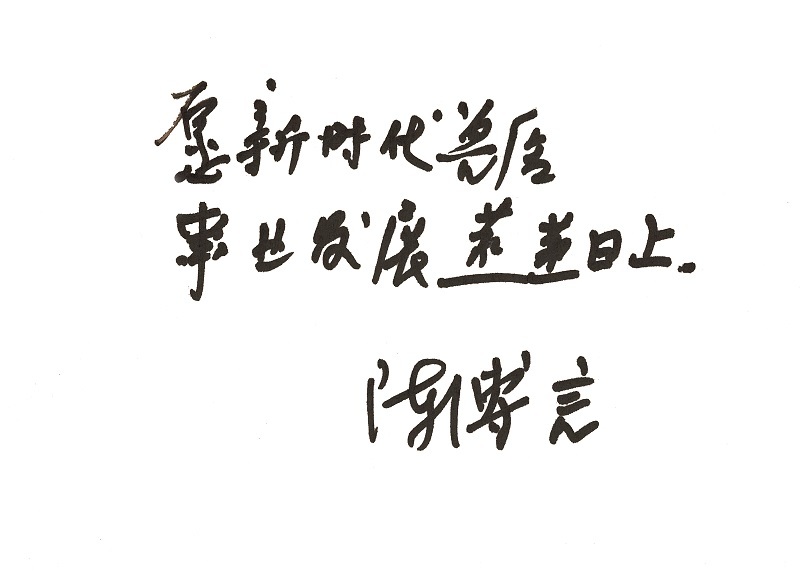 愿新时代兽医
事业发展蒸蒸日上.
陈溥言